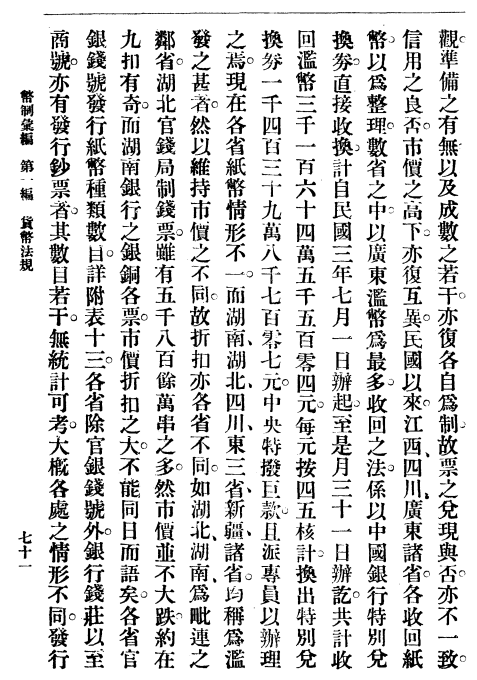 觀。準備之有無以及成數之若干。亦復各自爲制。故票之兌現與否。亦不一致。
信用之良否。市價之高下。亦復互異。民國以來。江西、四川、廣東諸省各收回紙
幣以爲整理。數省之中。以廣東濫幣爲最多。收回之法。係以中國銀行特別兌
換劵直接收換。計自民國三年七月一日辦起。至是月三十一日辦訖。共計收
回濫幣三千一百六十四萬五千五百零四元。每元按四五核計。換出特別兌
換劵一千四百三十九萬八千七百零七元。中央特撥巨款。且派專員以辦理
之焉。現在各省紙幣情形不一。而湖南、湖北、四川、東三省、新疆諸省。均稱爲濫
發之甚者。然以維持市價之不同。故折扣亦各省不同。如湖北、湖南、爲毗連之
鄰省。湖北官錢局制錢票。雖有五千八百餘萬串之多。然市價並不大跌。約在
九扣有奇。而湖南銀行之銀銅各票。市價折扣之大。不能同日而語矣。各省官
銀錢號發行紙幣種類數目。詳附表十三。各省除官銀錢號外。銀行錢莊以至
商號。亦有發行鈔票者。其數目若干。無統計可考。大概各處之情形不同。發行
幣制彙編　第一編　貨幣法規
七十一